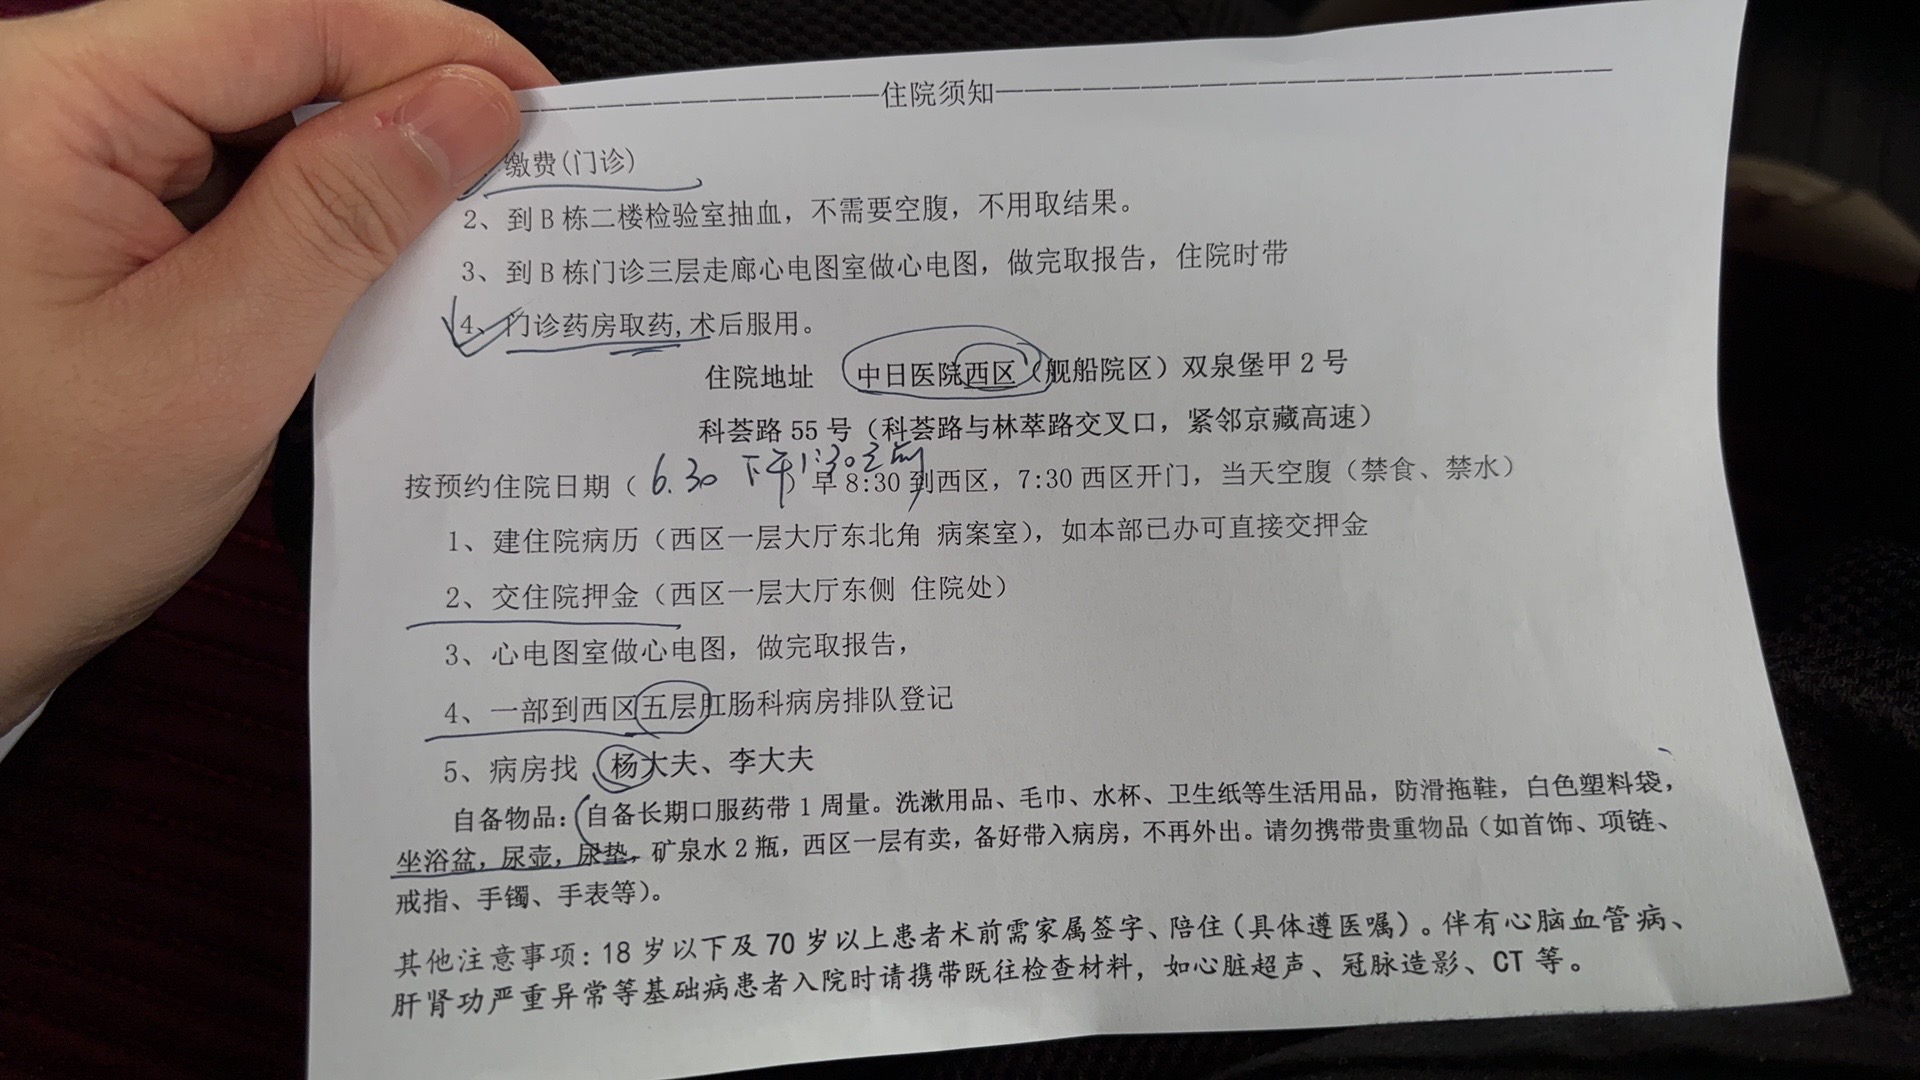 住院须知
缴费(门诊)
2、到 B 栋二楼检验室抽血，不需要空腹，不用取结果。
3、到 B 栋门诊三层走廊心电图室做心电图，做完取报告，住院时带
4、门诊药房取药,术后服用。
住院地址 中日医院西区（舰船院区）双泉堡甲 2 号
科荟路 55 号（科荟路与林萃路交叉口，紧邻京藏高速）
下午1:30之前
按预约住院日期（ 6.30 ）早 8:30 到西区，7:30 西区开门，当天空腹（禁食、禁水）
1、建住院病历（西区一层大厅东北角 病案室），如本部已办可直接交押金
2、交住院押金（西区一层大厅东侧 住院处）
3、心电图室做心电图，做完取报告，
4、一部到西区五层肛肠科病房排队登记
5、病房找 杨大夫、李大夫
自备物品：自备长期口服药带 1 周量。洗漱用品、毛巾、水杯、卫生纸等生活用品，防滑拖鞋，白色塑料袋，
坐浴盆，尿壶，尿垫，矿泉水 2 瓶，西区一层有卖，备好带入病房，不再外出。请勿携带贵重物品（如首饰、项链、
戒指、手镯、手表等）。
其他注意事项：18 岁以下及 70 岁以上患者术前需家属签字、陪住（具体遵医嘱）。伴有心脑血管病、
肝肾功严重异常等基础病患者入院时请携带既往检查材料，如心脏超声、冠脉造影、CT 等。